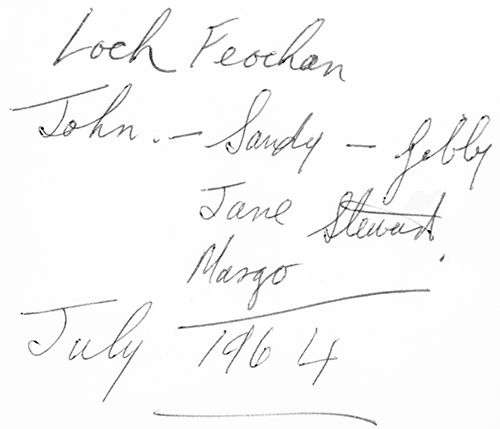 Loch Feochan
John. – Sandy – Gebby
Jane Stewart.
Margo
July 1964